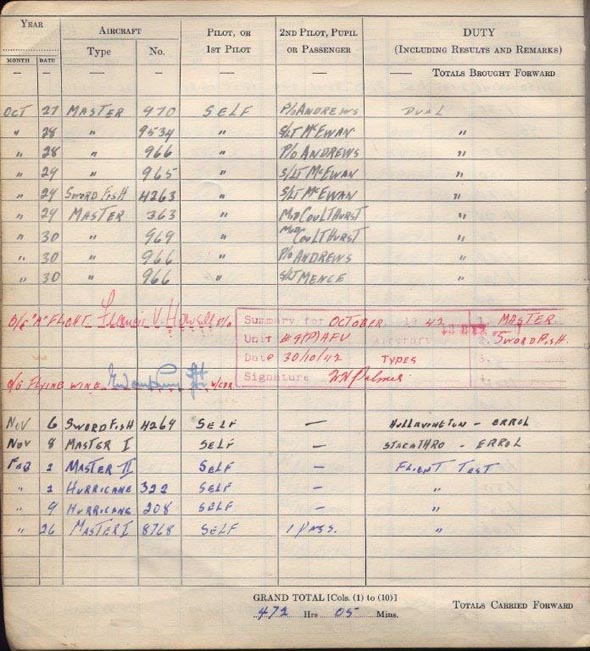 YEAR AIRCRAFT PILOT, OR 2ND PILOT, PUPIL DUTY
MONTH DATE Type No. 1ST PILOT OR PASSENGER (INCLUDING RESULTS AND REMARKS)
— — — — — — — TOTALS BROUGHT FORWARD
OCT 27 MASTER 970 SELF P/O ANDREWS DUAL
" 28 " 9534 " S/LT McEWAN "
" 28 " 966 " P/O ANDREWS "
" 29 " 965 " S/LT McEWAN "
" 29 SWORDFISH 4263 " S/LT McEWAN "
" 29 MASTER 363 " COULTHURST "
" 30 " 969 " COULTHURST "
" 30 " 966 " P/O ANDREWS "
" 30 " 966 " S/LT MENCE "
O/C "A" FLIGHT
Summary for OCTOBER 1942 1. MASTER
Unit #9(P)AFU Aircraft 2. SWORDFISH.
Date 30/10/42 TYPES 3.
Signature W Palmer 4.
O/C FLYING WING W/CDR
NOV 6 SWORDFISH 4269 SELF — HULLAVINGTON - ERROL
NOV 8 MASTER I SELF — - ERROL
FEB 2 MASTER II SELF — FLIGHT TEST
" 2 HURRICANE 322 SELF — "
" 9 HURRICANE 208 SELF — "
" 26 MASTER I 8768 SELF 1 PASS. "
GRAND TOTAL [Cols. (1) to (10)]
472 Hrs 05 Mins. TOTALS CARRIED FORWARD